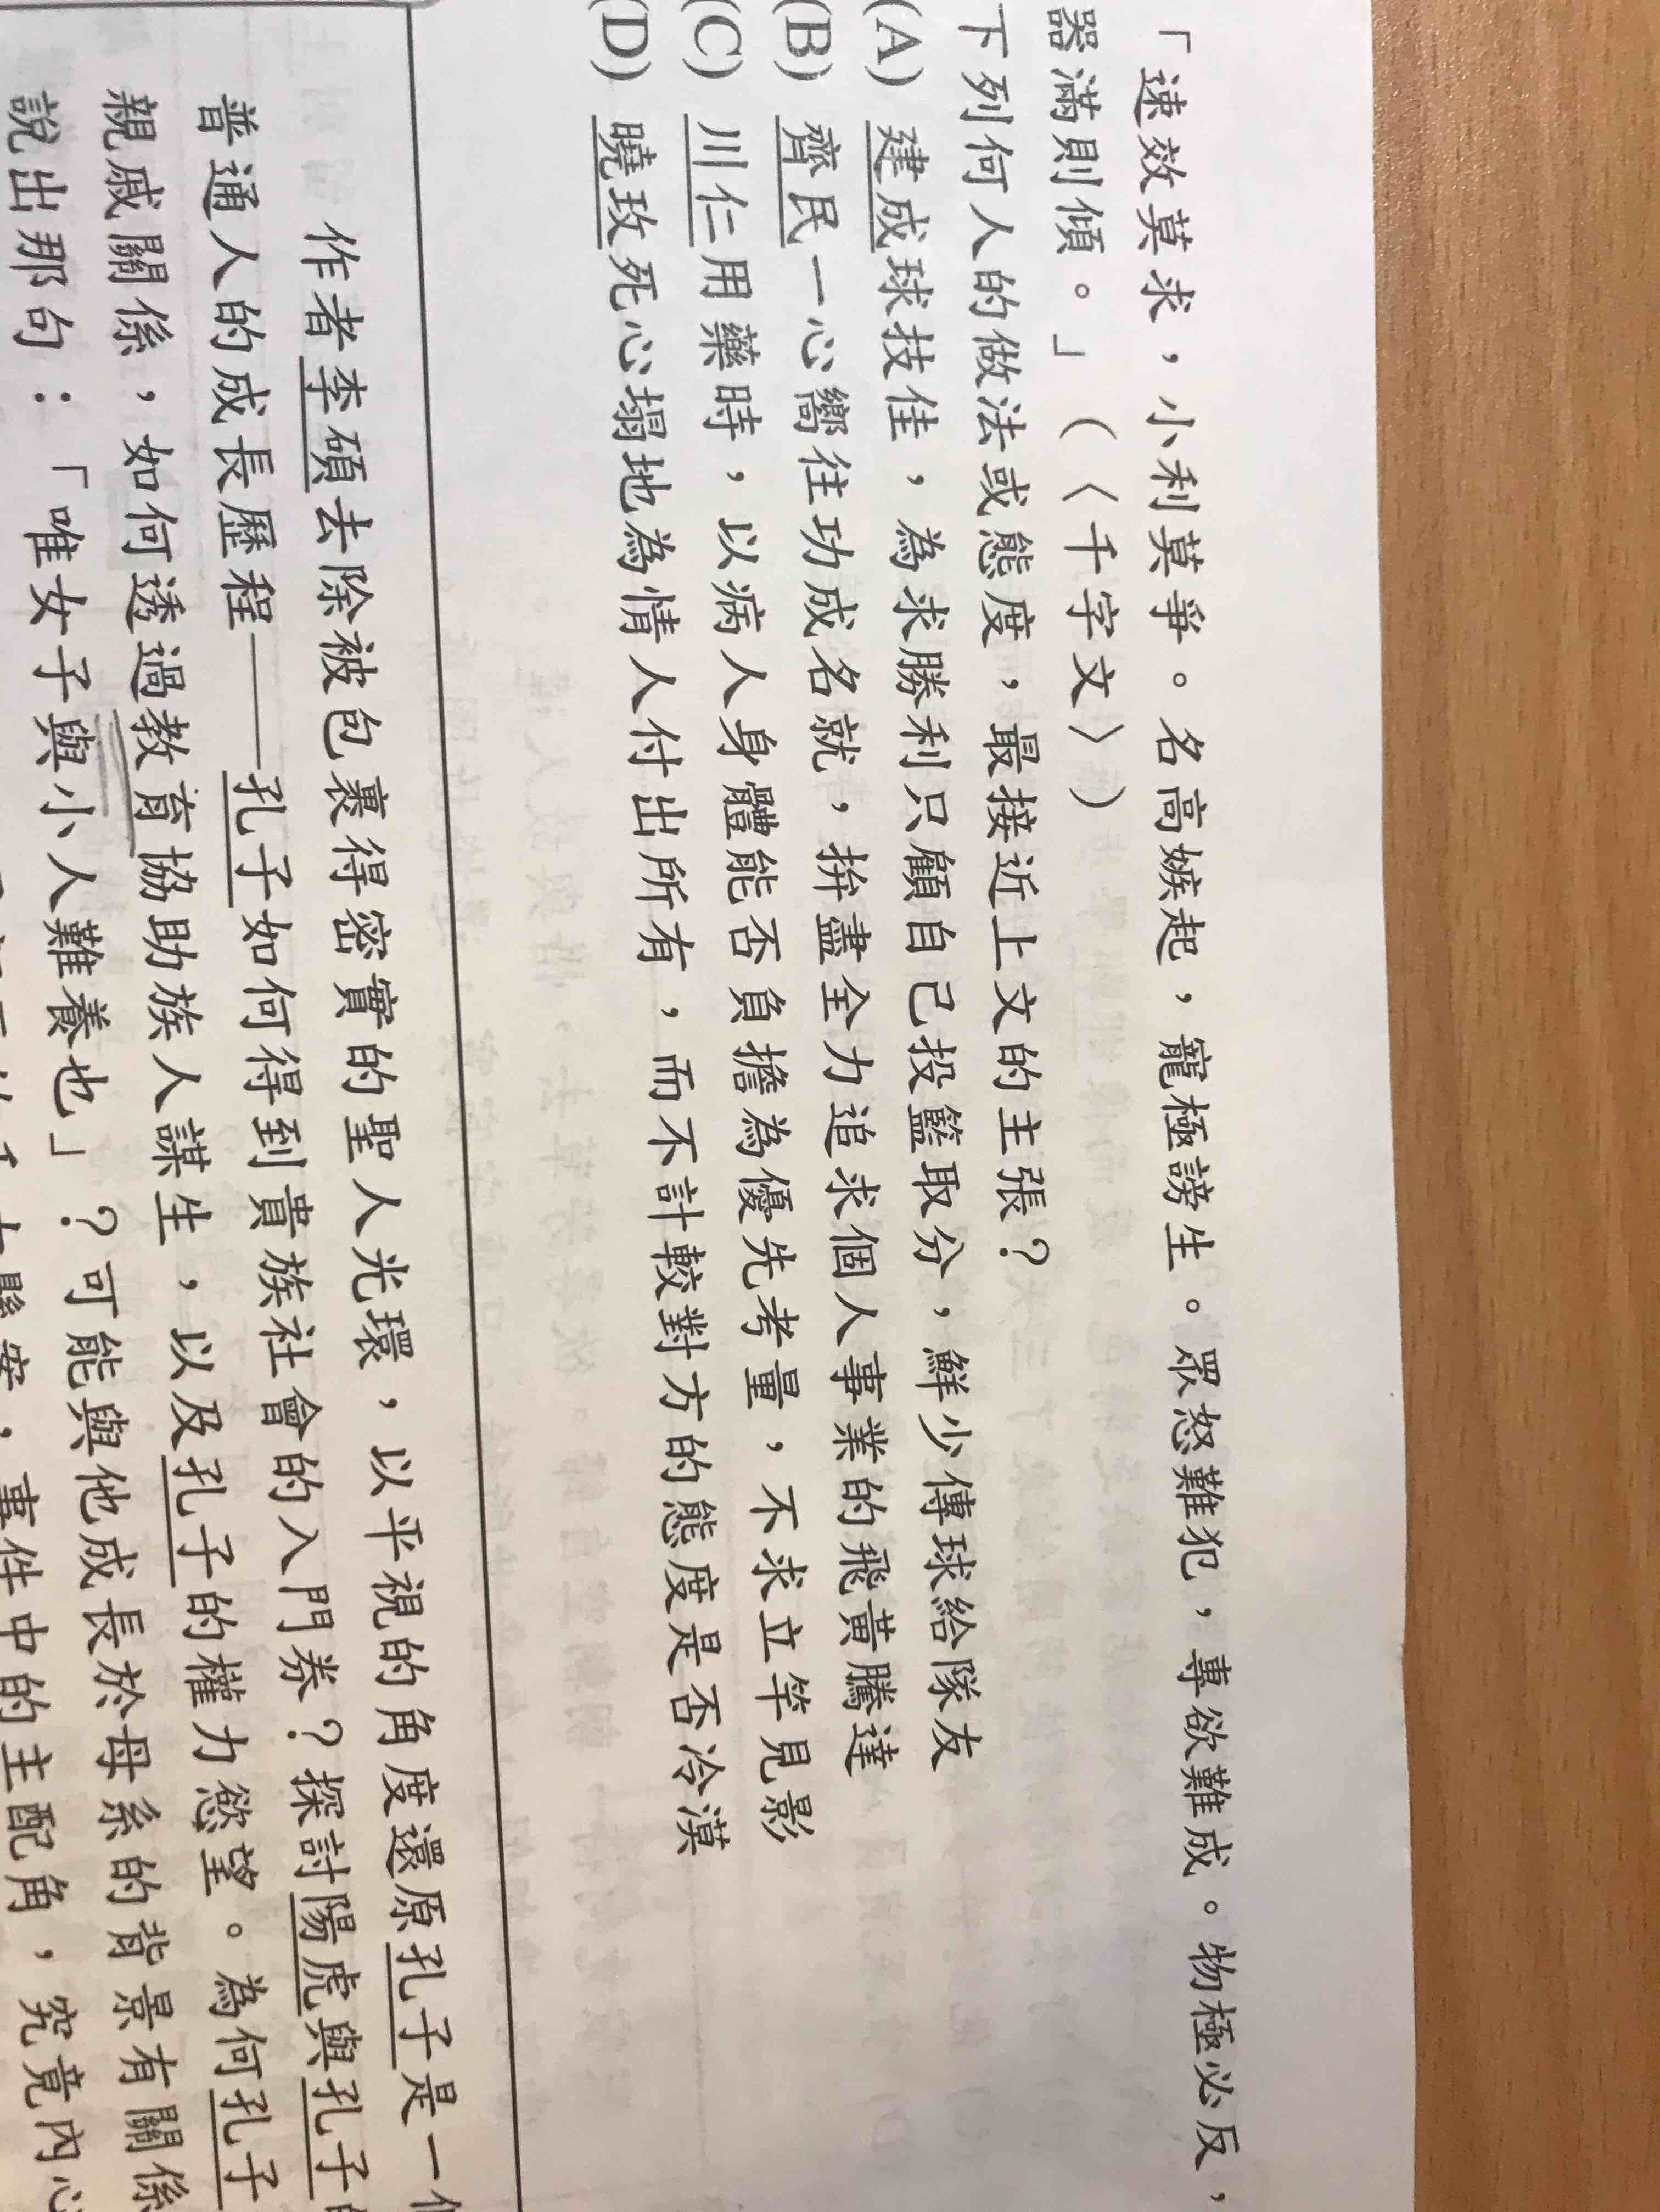 「速效莫求，小利莫爭。名高嫉起，寵極謗生。眾怒難犯，專欲難成。物極必反，
器滿則傾。」（〈千字文〉）
下列何人的做法或態度，最接近上文的主張？
(A) 建成球技佳，為求勝利只顧自己投籃取分，鮮少傳球給隊友
(B) 齊民一心嚮往功成名就，拚盡全力追求個人事業的飛黃騰達
(C) 川仁用藥時，以病人身體能否負擔為優先考量，不求立竿見影
(D) 曉玫死心塌地為情人付出所有，而不計較對方的態度是否冷漠
作者李碩去除被包裹得密實的聖人光環，以平視的角度還原孔子是一
普通人的成長歷程——孔子如何得到貴族社會的入門券？探討陽虎與孔子
親戚關係，如何透過教育協助族人謀生，以及孔子的權力慾望。為何孔子
說出那句：「唯女子與小人難養也」？可能與他成長於母系的背景有關係
事件中的主配角，究竟內心